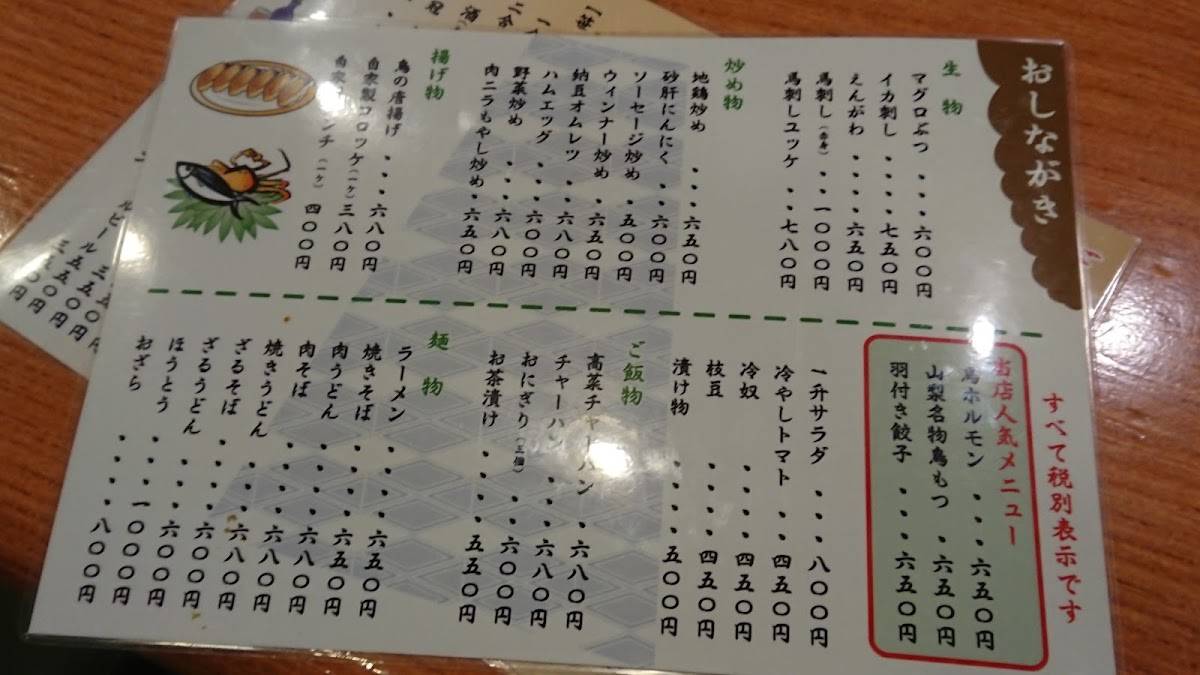 おしながき
生物
マグロぶつ・・・・六〇〇円
イカ刺し・・・・七五〇円
えんがわ・・・・六五〇円
馬刺し(赤身)・・一〇〇〇円
馬刺しユッケ・・七八〇円
炒め物
地鶏炒め・・・六五〇円
砂肝にんにく・・六〇〇円
ソーセージ炒め・五〇〇円
ウィンナー炒め・六五〇円
納豆オムレツ・・六八〇円
ハムエッグ・・・六〇〇円
野菜炒め・・・六八〇円
肉ニラもやし炒め・六五〇円
揚げ物
鳥の唐揚げ・・・六八〇円
自家製コロッケ(一ヶ)三八〇円
自家 ンチ(一ヶ)四〇〇円
すべて税別表示です
当店人気メニュー
鳥ホルモン・・・六五〇円
山梨名物鳥もつ・六五〇円
羽付き餃子・・・六五〇円
一升サラダ・・・八〇〇円
冷やしトマト・・四五〇円
冷奴・・・四五〇円
枝豆・・・・四五〇円
漬け物・・・・五〇〇円
ご飯物
高菜チャーハン・・六八〇円
チャーハン・・・六八〇円
おにぎり(三個)・・六〇〇円
お茶漬け・・・・五五〇円
麺物
ラーメン・・・・六五〇円
焼きそば・・・・六五〇円
肉うどん・・・・六八〇円
肉そば・・・・六八〇円
焼きうどん・・・六八〇円
ざるそば・・・・六〇〇円
ざるうどん・・・六〇〇円
ほうとう・・・一〇〇〇円
おざら・・・・八〇〇円